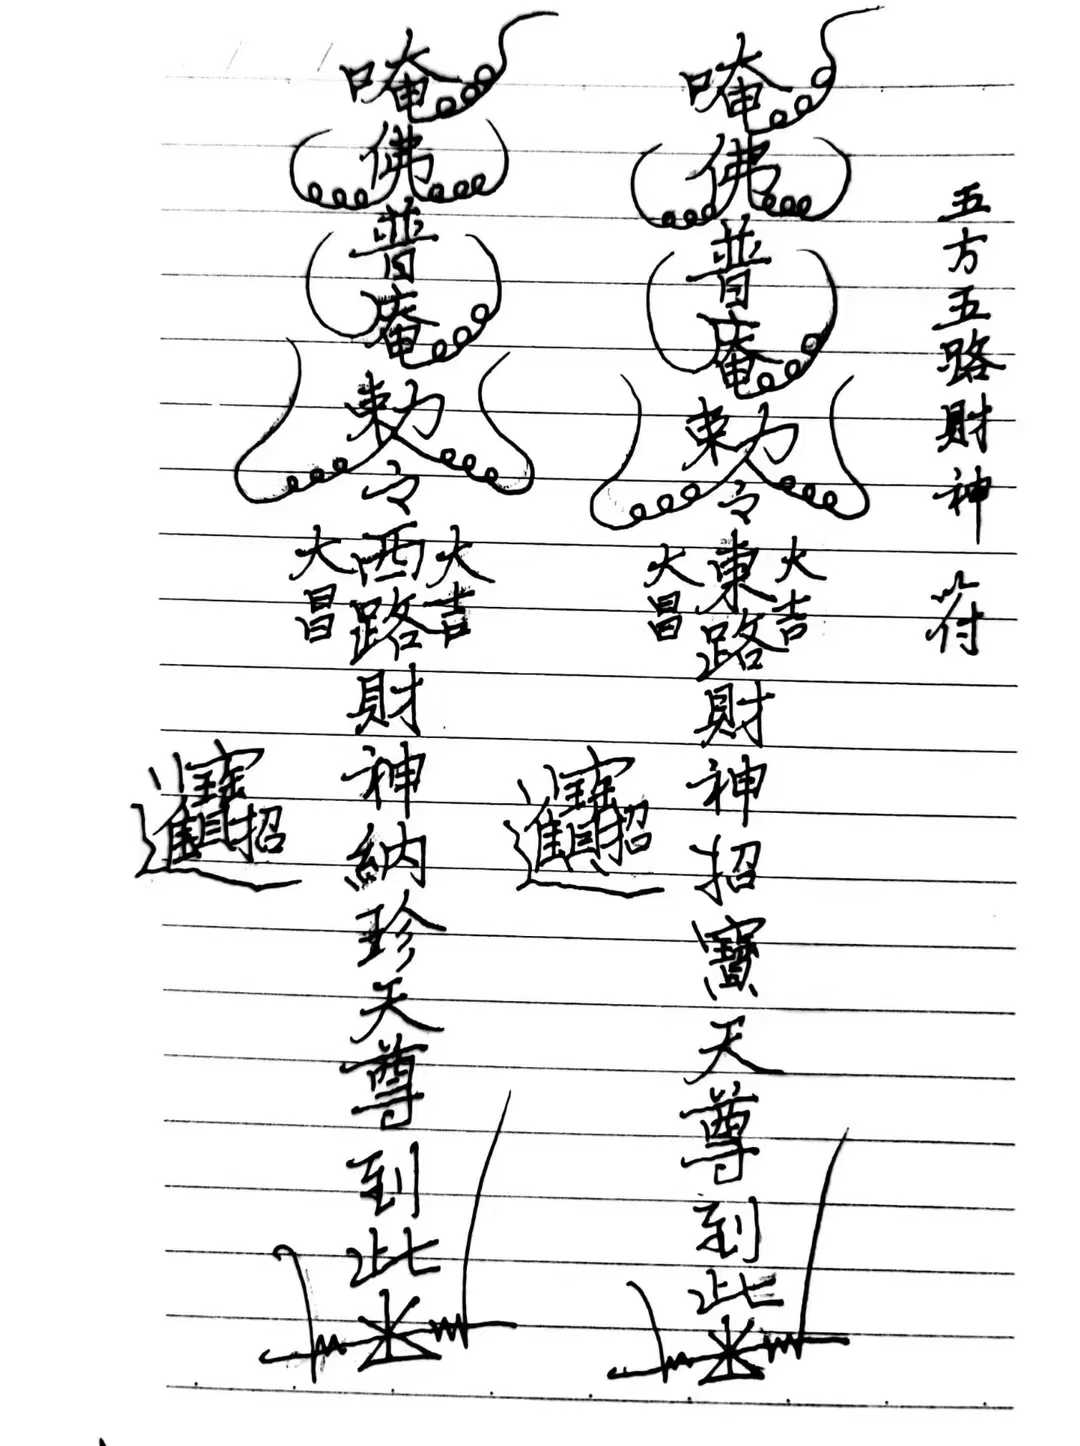 五方五路財神 符
唵佛普庵勅令東路財神招寶天尊到此
大吉
大昌
招寶進
唵佛普庵勅令西路財神納珍天尊到此
大吉
大昌
招寶進